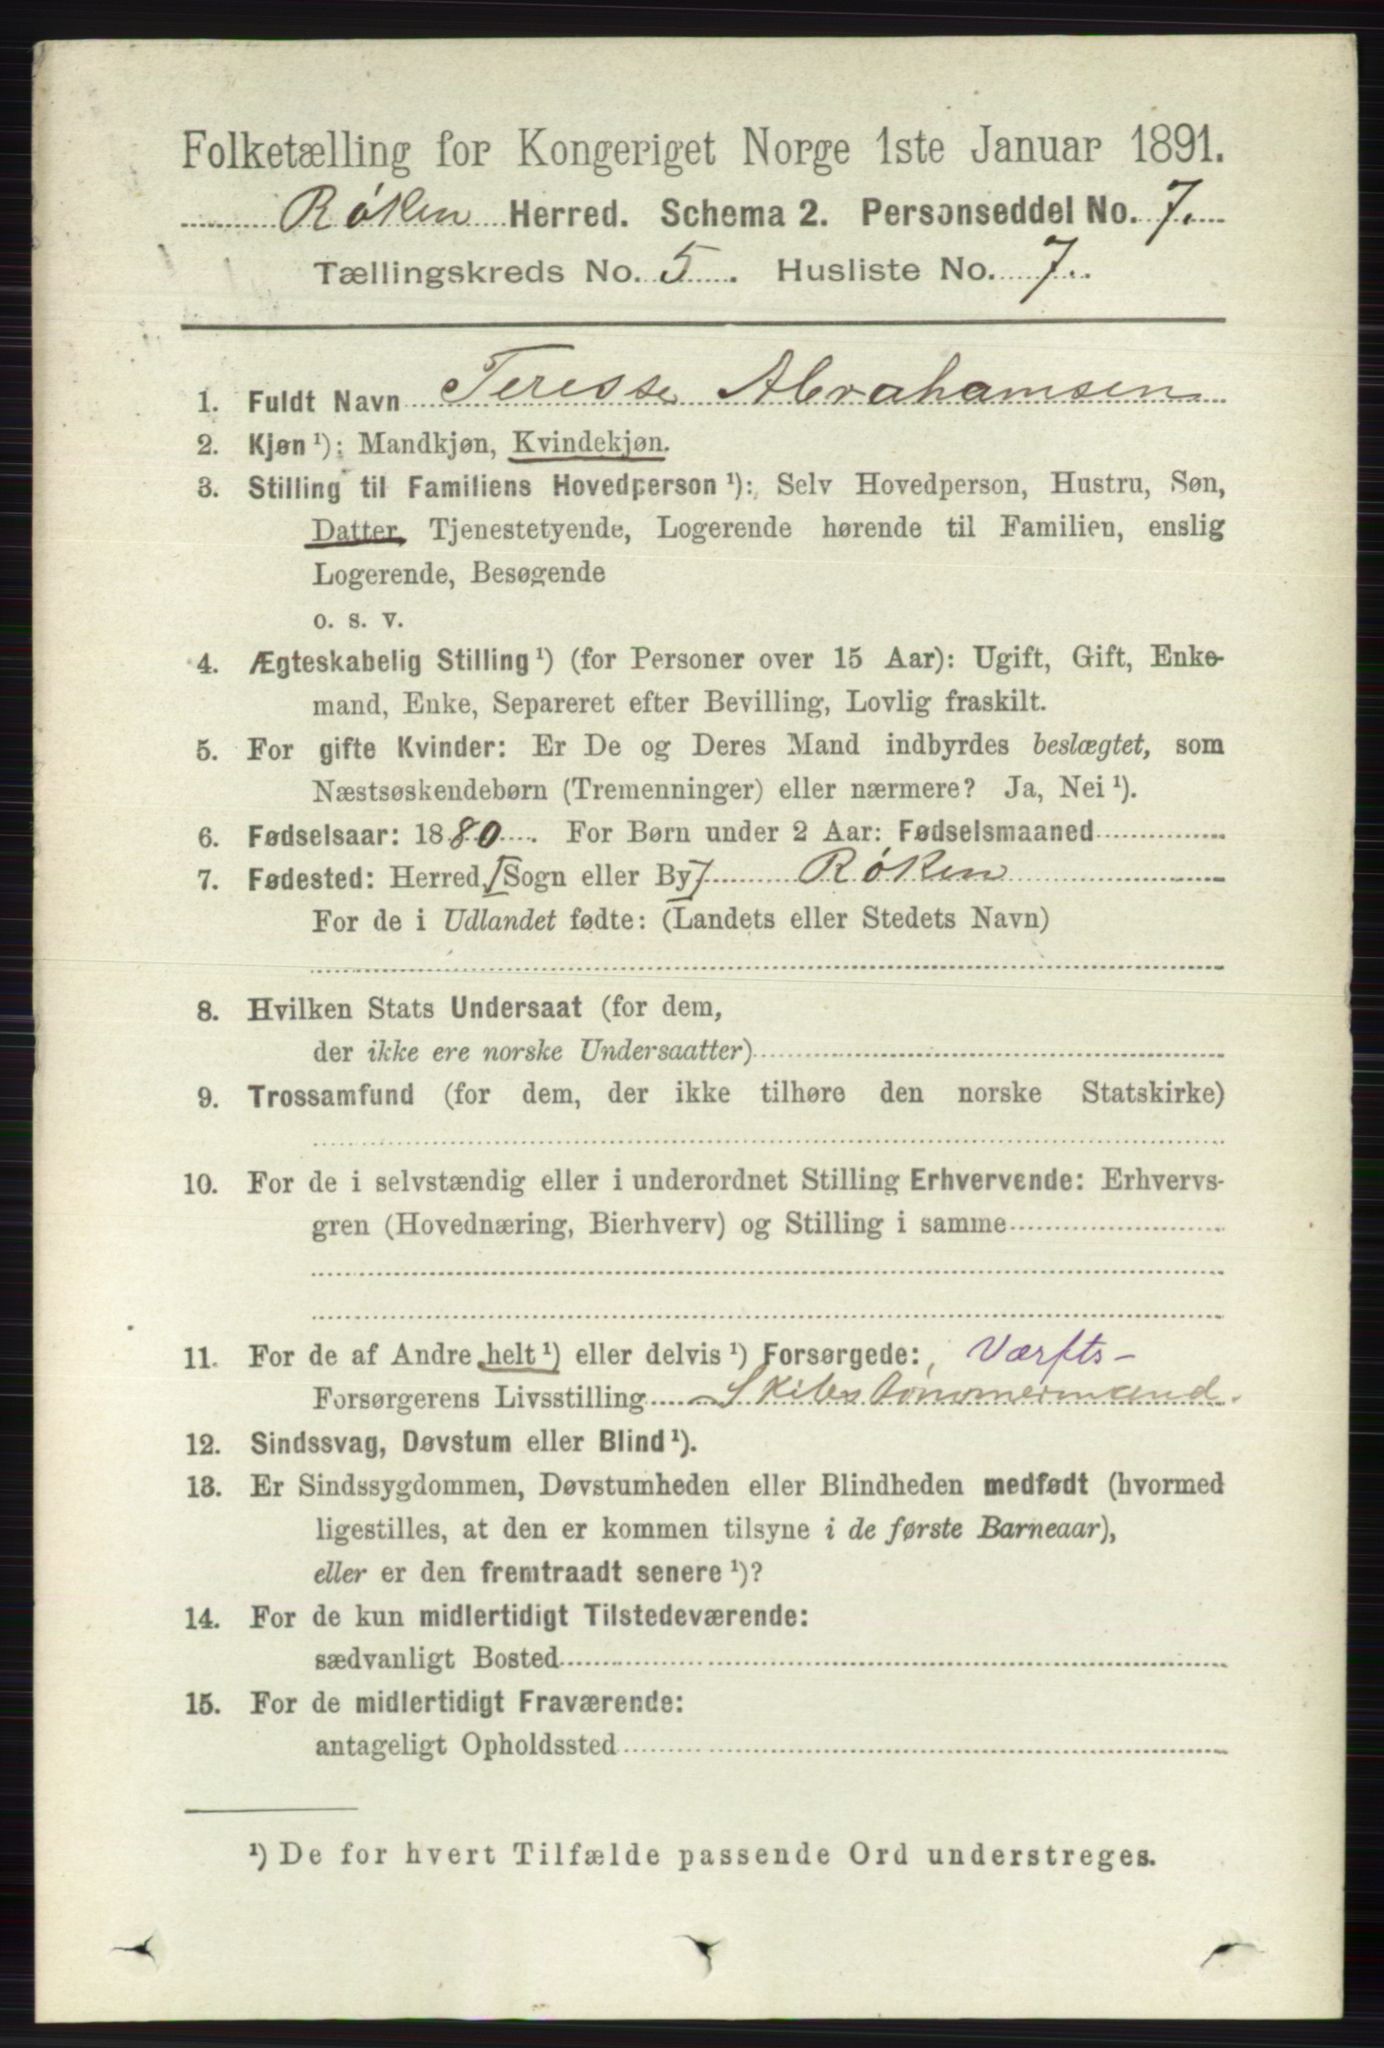 Folketælling for Kongeriget Norge 1ste Januar 1891.
Røken Herred. Schema 2. Personseddel No. 7.
Tællingskreds No. 5. Husliste No. 7.
1. Fuldt Navn Teresse Abrahamsen
2. Kjøn ¹): Mandkjøn, Kvindekjøn.
3. Stilling til Familiens Hovedperson ¹): Selv Hovedperson, Hustru, Søn,
Datter, Tjenestetyende, Logerende hørende til Familien, enslig
Logerende, Besøgende
o. s. v.
4. Ægteskabelig Stilling ¹) (for Personer over 15 Aar): Ugift, Gift, Enke-
mand, Enke, Separeret efter Bevilling, Lovlig fraskilt.
5. For gifte Kvinder: Er De og Deres Mand indbyrdes beslægtet, som
Næstsøskendebørn (Tremenninger) eller nærmere? Ja, Nei ¹).
6. Fødselsaar: 1880. For Børn under 2 Aar: Fødselsmaaned
7. Fødested: Herred, [Sogn eller By] Røken
For de i Udlandet fødte: (Landets eller Stedets Navn)
8. Hvilken Stats Undersaat (for dem,
der ikke ere norske Undersaatter)
9. Trossamfund (for dem, der ikke tilhøre den norske Statskirke)
10. For de i selvstændig eller i underordnet Stilling Erhvervende: Erhvervs-
gren (Hovednæring, Bierhverv) og Stilling i samme
11. For de af Andre helt ¹) eller delvis ¹) Forsørgede: Værfts-
Forsørgerens Livsstilling Skibstømmermand.
12. Sindssvag, Døvstum eller Blind ¹).
13. Er Sindssygdommen, Døvstumheden eller Blindheden medfødt (hvormed
ligestilles, at den er kommen tilsyne i de første Barneaar),
eller er den fremtraadt senere ¹)?
14. For de kun midlertidigt Tilstedeværende:
sædvanligt Bosted
15. For de midlertidigt Fraværende:
antageligt Opholdssted
¹) De for hvert Tilfælde passende Ord understreges.